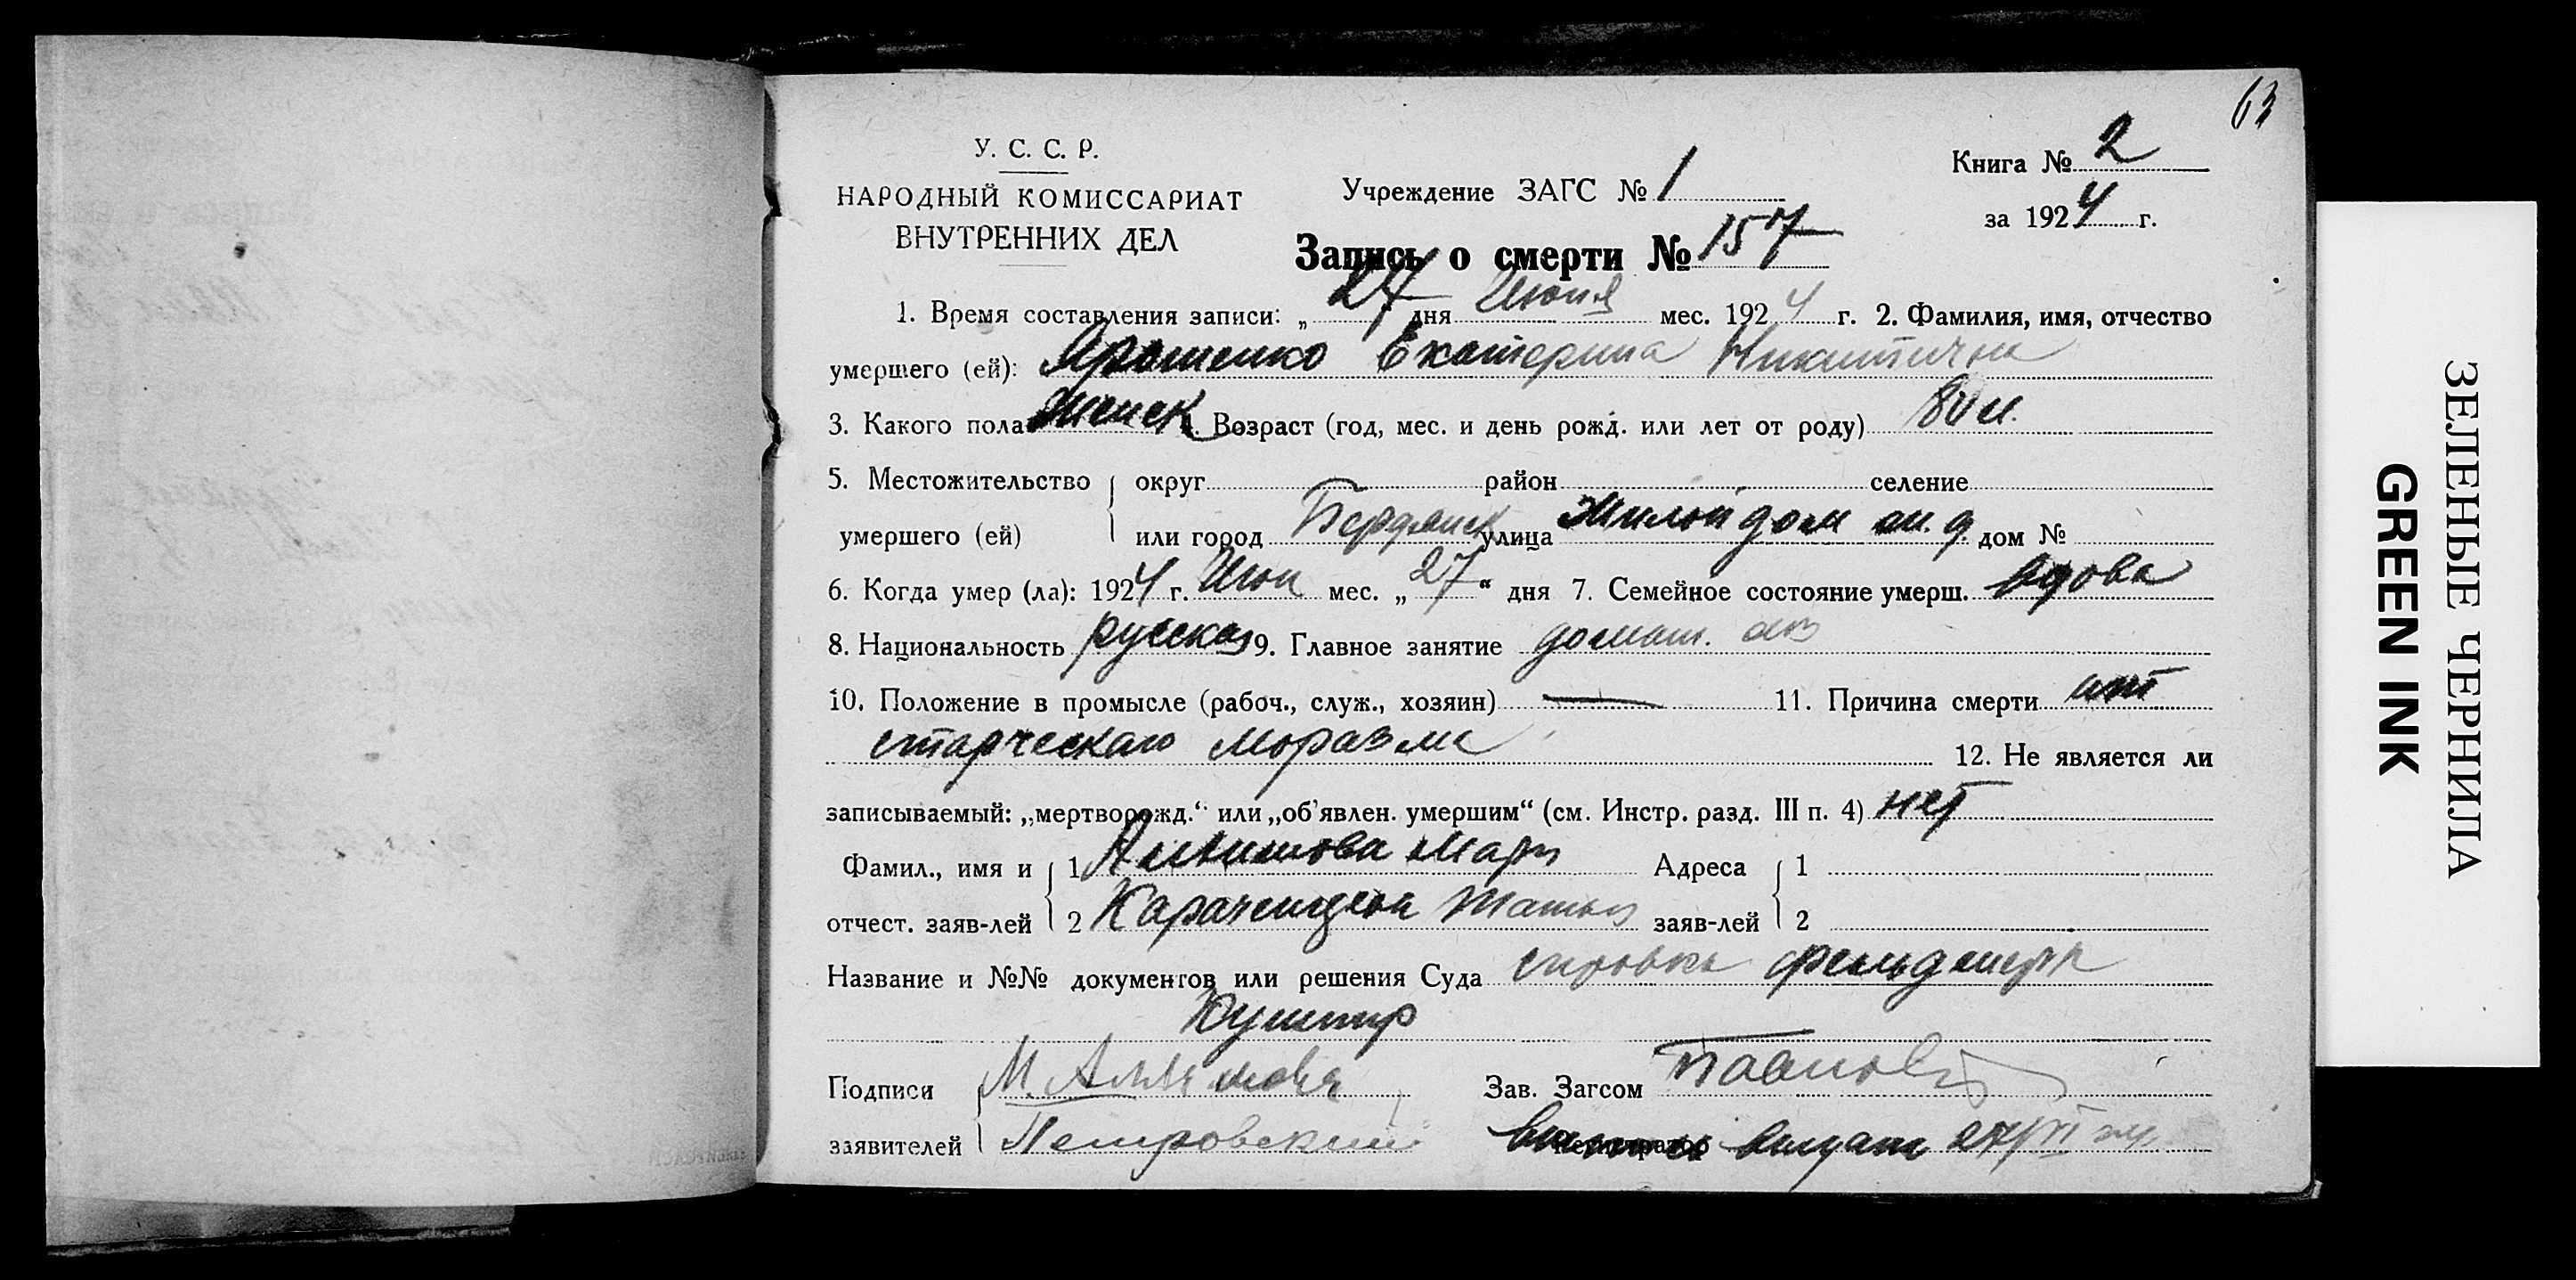 63
У. С. С. Р.
НАРОДНЫЙ КОМИССАРИАТ
ВНУТРЕННИХ ДЕЛ
Учреждение ЗАГС № 1
Книга № 2
за 1924 г.
Запись о смерти № 157
1. Время составления записи: „ 27 дня Июня мес. 1924 г. 2. Фамилия, имя, отчество
умершего (ей): Ярошенко Екатерина Никитична
3. Какого пола женск 4. Возраст (год, мес. и день рожд. или лет от роду) 80 л.
5. Местожительство округ район селение
умершего (ей) или город Бердянск улица Жилой дом ж. д. дом №
6. Когда умер (ла): 1924 г. Июн мес. „ 27 “ дня 7. Семейное состояние умерш. вдова
8. Национальность русская 9. Главное занятие домаш. хоз
10. Положение в промысле (рабоч., служ., хозяин) — 11. Причина смерти от
старческаго моразма
12. Не является ли
записываемый: „мертворожд.“ или „об'явлен. умершим“ (см. Инстр. разд. III п. 4) нет
Фамил., имя и 1 Мария Адреса 1
отчест. заяв-лей 2 Татьян заяв-лей 2
Название и №№ документов или решения Суда справка фельдшера
Кушнир
Подписи М. Зав. Загсом
заявителей Петровский выдат
ЗЕЛЕНЫЕ ЧЕРНИЛА
GREEN INK